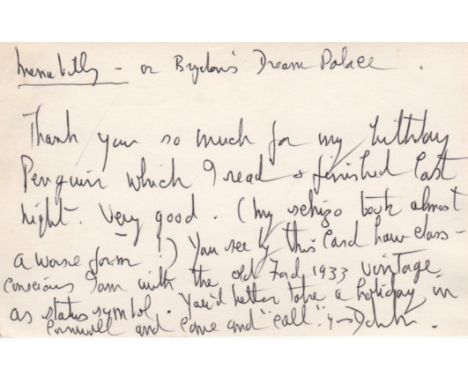 Menabilly – or Brydon's Dream Palace.
Thank you so much for my birthday
Penguin which I read & finished last
night. Very good. (My schizo book almost
a worse form!) You see by this card how class-
conscious I am with the old Ford 1933 vintage
as status symbol. You'd better take a holiday in
Cornwall and come and "call".